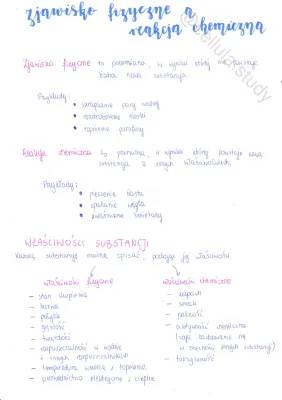 zjawisko fizyczne a
reakcja chemiczna
@cellula.study
Zjawisko fizyczne to przemiana, w wyniku której nie powstaje
żadna nowa substancja.
Przykłady:
skraplanie pary wodnej
rozdrobnienie siarki
topnienie parafiny
Reakcja chemiczna to przemiana, w wyniku której powstaje nowa
substancja o innych właściwościach.
Przykłady:
pieczenie ciasta
spalanie węgla
kwaśnienie śmietany
WŁAŚCIWOŚCI SUBSTANCJI
Każdą substancję można opisać, podając jej właściwości
właściwości fizyczne
- stan skupienia
- barwa
- połysk
- gęstość
- twardość
- rozpuszczalność w wodzie
i innych rozpuszczalnikach
- temperatura wrzenia / topnienia
- przewodnictwo elektryczne / cieplne
właściwości chemiczne
- zapach
- smak
- palność
- aktywność chemiczna
w obecności innych substancji)
- toksyczność